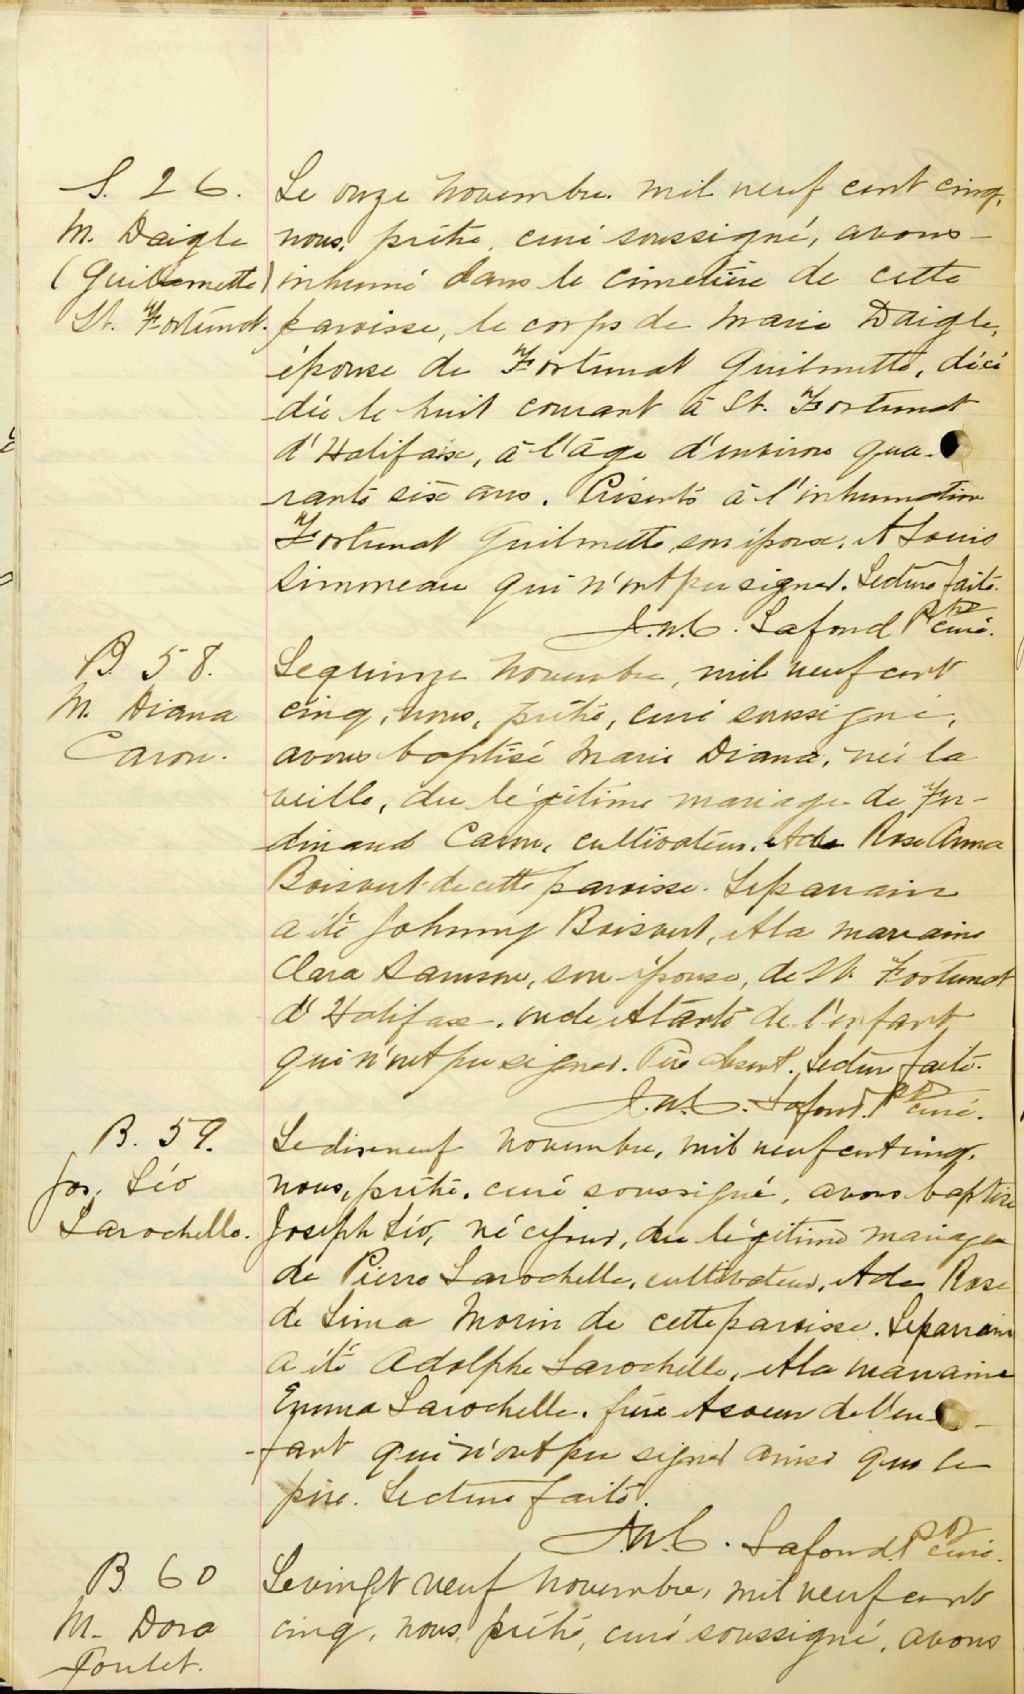 S. 26.
M. Daigle
(Guilmette)
St. Fortunat.
Le onze novembre mil neuf cent cinq,
nous, prêtre, curé soussigné, avons
inhumé dans le cimetière de cette
paroisse, le corps de Marie Daigle,
épouse de Fortunat Guilmette, décé
dée le huit courant à St. Fortunat
d'Halifax, à l'âge d'environ qua-
rante six ans. Présents à l'inhumation
Fortunat Guilmette, son époux, et Louis
Simoneau qui n'ont pu signer. Lecture faite.
J.N.C. Lafond Ptre curé.
B 58.
M. Diana
Caron.
Le quinze novembre, mil neuf cent
cinq, nous, prêtre, curé soussigné,
avons baptisé Marie Diana, née la
veille, du légitime mariage de Fer-
dinand Caron, cultivateur, et de Rose Anna
Boisvert de cette paroisse. Le parrain
a été Johnny Boisvert, et la marraine
Clara Samson, son épouse, de St. Fortunat
d'Halifax, oncle et tante de l'enfant
qui n'ont pu signer. Père absent. Lecture faite.
J.N.C. Lafond Ptre curé.
B. 59.
Jos. Léo
Larochelle.
Le dix neuf novembre, mil neuf cent cinq,
nous, prêtre, curé soussigné, avons baptisé
Joseph Léo, né ce jour, du légitime mariage
de Pierre Larochelle, cultivateur, et de Rose
de Lima Morin de cette paroisse. Le parrain
a été Adolphe Larochelle, et la marraine
Emma Larochelle, frère et soeur de l'en-
fant qui n'ont pu signer ainsi que le
père. Lecture faite.
J.N.C. Lafond Ptre curé.
B 60
M. Dora
Le vingt neuf novembre, mil neuf cent
cinq, nous, prêtre, curé soussigné, avons